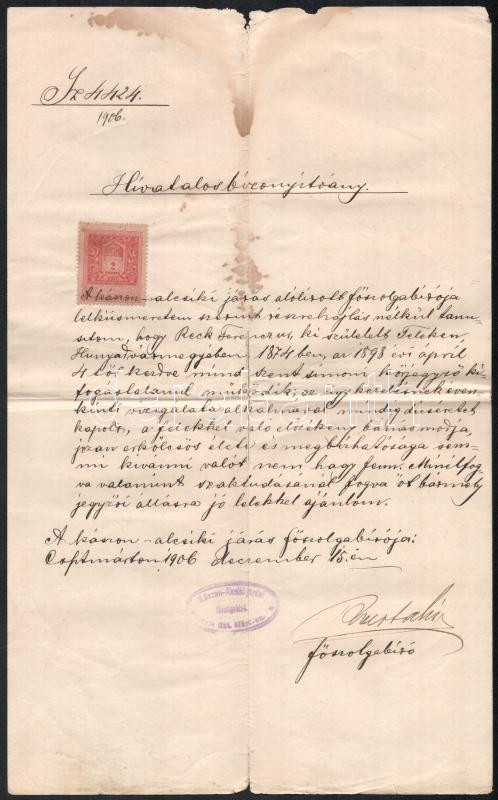 Sz 4424.
1906.
Hivatalos bizonyitvány.
2
A kászon-alcsiki járás alólirott főszolgabirája
lelkiismeretem szerint részrehajlás nélkül tanu-
sitom, hogy Reck Ferenczur, ki született Teleken,
Hunyadvármegyében 1874 ben, az 1898 évi april
4 től kezdve mind szent simoni körjegyző ki-
fogástalanul működik, ügykezelésének éven-
kinti vizsgálata alkalmával mindig dicséretet
kapott, a felekkel való előzékeny bánásmódja,
józan erkölcsös élete és megbizhatósága sem-
mi kivánni valót nem hagy fenn. Minélfog-
va valamint szaktudásánál fogva őt bármely
jegyzői állásra jó lélekkel ajánlom.
A kászon-alcsiki járás főszolgabirája:
Csikszentmárton, 1906 December 15.-én
Kászon-Alcsiki járási
főszolgabiró
főszolgabiró